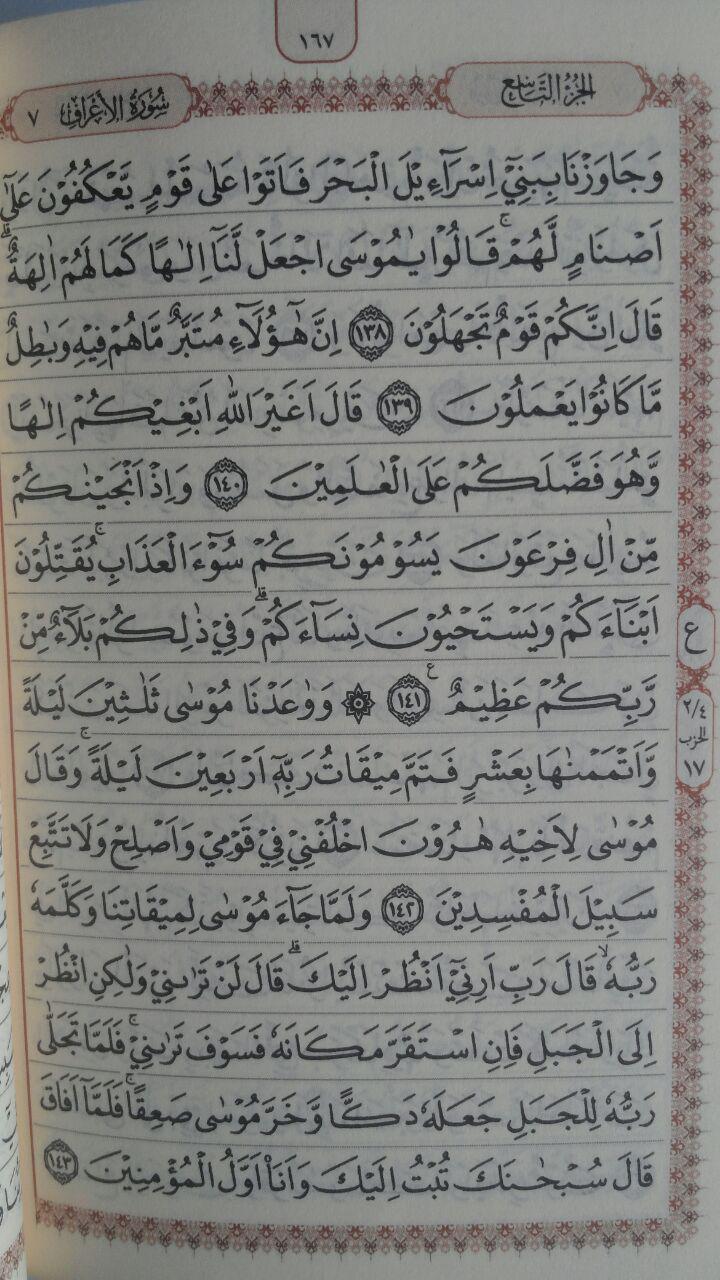 ١٦٧
الجزء التاسع
سورة الأعراف ٧
وَجَاوَزْنَا بِبَنِيْٓ اِسْرَاۤءِيْلَ الْبَحْرَ فَاَتَوْا عَلٰى قَوْمٍ يَّعْكُفُوْنَ عَلٰٓى
اَصْنَامٍ لَّهُمْۚ قَالُوْا يٰمُوْسَى اجْعَلْ لَّنَآ اِلٰهًا كَمَا لَهُمْ اٰلِهَةٌۗ
قَالَ اِنَّكُمْ قَوْمٌ تَجْهَلُوْنَ ١٣٨ اِنَّ هٰٓؤُلَاۤءِ مُتَبَّرٌ مَّا هُمْ فِيْهِ وَبٰطِلٌ
مَّا كَانُوْا يَعْمَلُوْنَ ١٣٩ قَالَ اَغَيْرَ اللّٰهِ اَبْغِيْكُمْ اِلٰهًا
وَّهُوَ فَضَّلَكُمْ عَلَى الْعٰلَمِيْنَ ١٤٠ وَاِذْ اَنْجَيْنٰكُمْ
مِّنْ اٰلِ فِرْعَوْنَ يَسُوْمُوْنَكُمْ سُوْۤءَ الْعَذَابِۚ يُقَتِّلُوْنَ
اَبْنَاۤءَكُمْ وَيَسْتَحْيُوْنَ نِسَاۤءَكُمْۗ وَفِيْ ذٰلِكُمْ بَلَاۤءٌ مِّنْ
رَّبِّكُمْ عَظِيْمٌ ١٤١ ع ۞ وَوٰعَدْنَا مُوْسٰى ثَلٰثِيْنَ لَيْلَةً
وَّاَتْمَمْنٰهَا بِعَشْرٍ فَتَمَّ مِيْقَاتُ رَبِّهٖٓ اَرْبَعِيْنَ لَيْلَةًۚ وَقَالَ
مُوْسٰى لِاَخِيْهِ هٰرُوْنَ اخْلُفْنِيْ فِيْ قَوْمِيْ وَاَصْلِحْ وَلَا تَتَّبِعْ
سَبِيْلَ الْمُفْسِدِيْنَ ١٤٢ وَلَمَّا جَاۤءَ مُوْسٰى لِمِيْقَاتِنَا وَكَلَّمَهٗ
رَبُّهٗۙ قَالَ رَبِّ اَرِنِيْٓ اَنْظُرْ اِلَيْكَۗ قَالَ لَنْ تَرٰىنِيْ وَلٰكِنِ انْظُرْ
اِلَى الْجَبَلِ فَاِنِ اسْتَقَرَّ مَكَانَهٗ فَسَوْفَ تَرٰىنِيْۚ فَلَمَّا تَجَلّٰى
رَبُّهٗ لِلْجَبَلِ جَعَلَهٗ دَكًّا وَّخَرَّ مُوْسٰى صَعِقًاۚ فَلَمَّآ اَفَاقَ
قَالَ سُبْحٰنَكَ تُبْتُ اِلَيْكَ وَاَنَا۠ اَوَّلُ الْمُؤْمِنِيْنَ ١٤٣
ع
٢/٤
الحزب
١٧